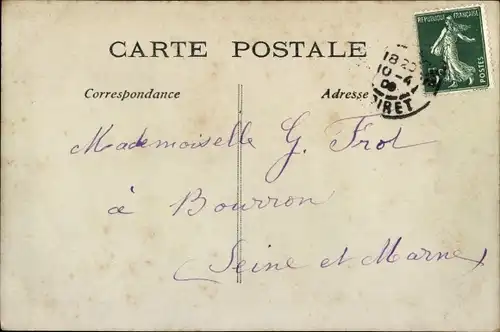 REPUBLIQUE FRANÇAISE
POSTES
CARTE POSTALE
18
10-4
09
OIRET
Correspondance
Adresse
Mademoiselle G. Frot
à Bourron
(Seine et Marne)